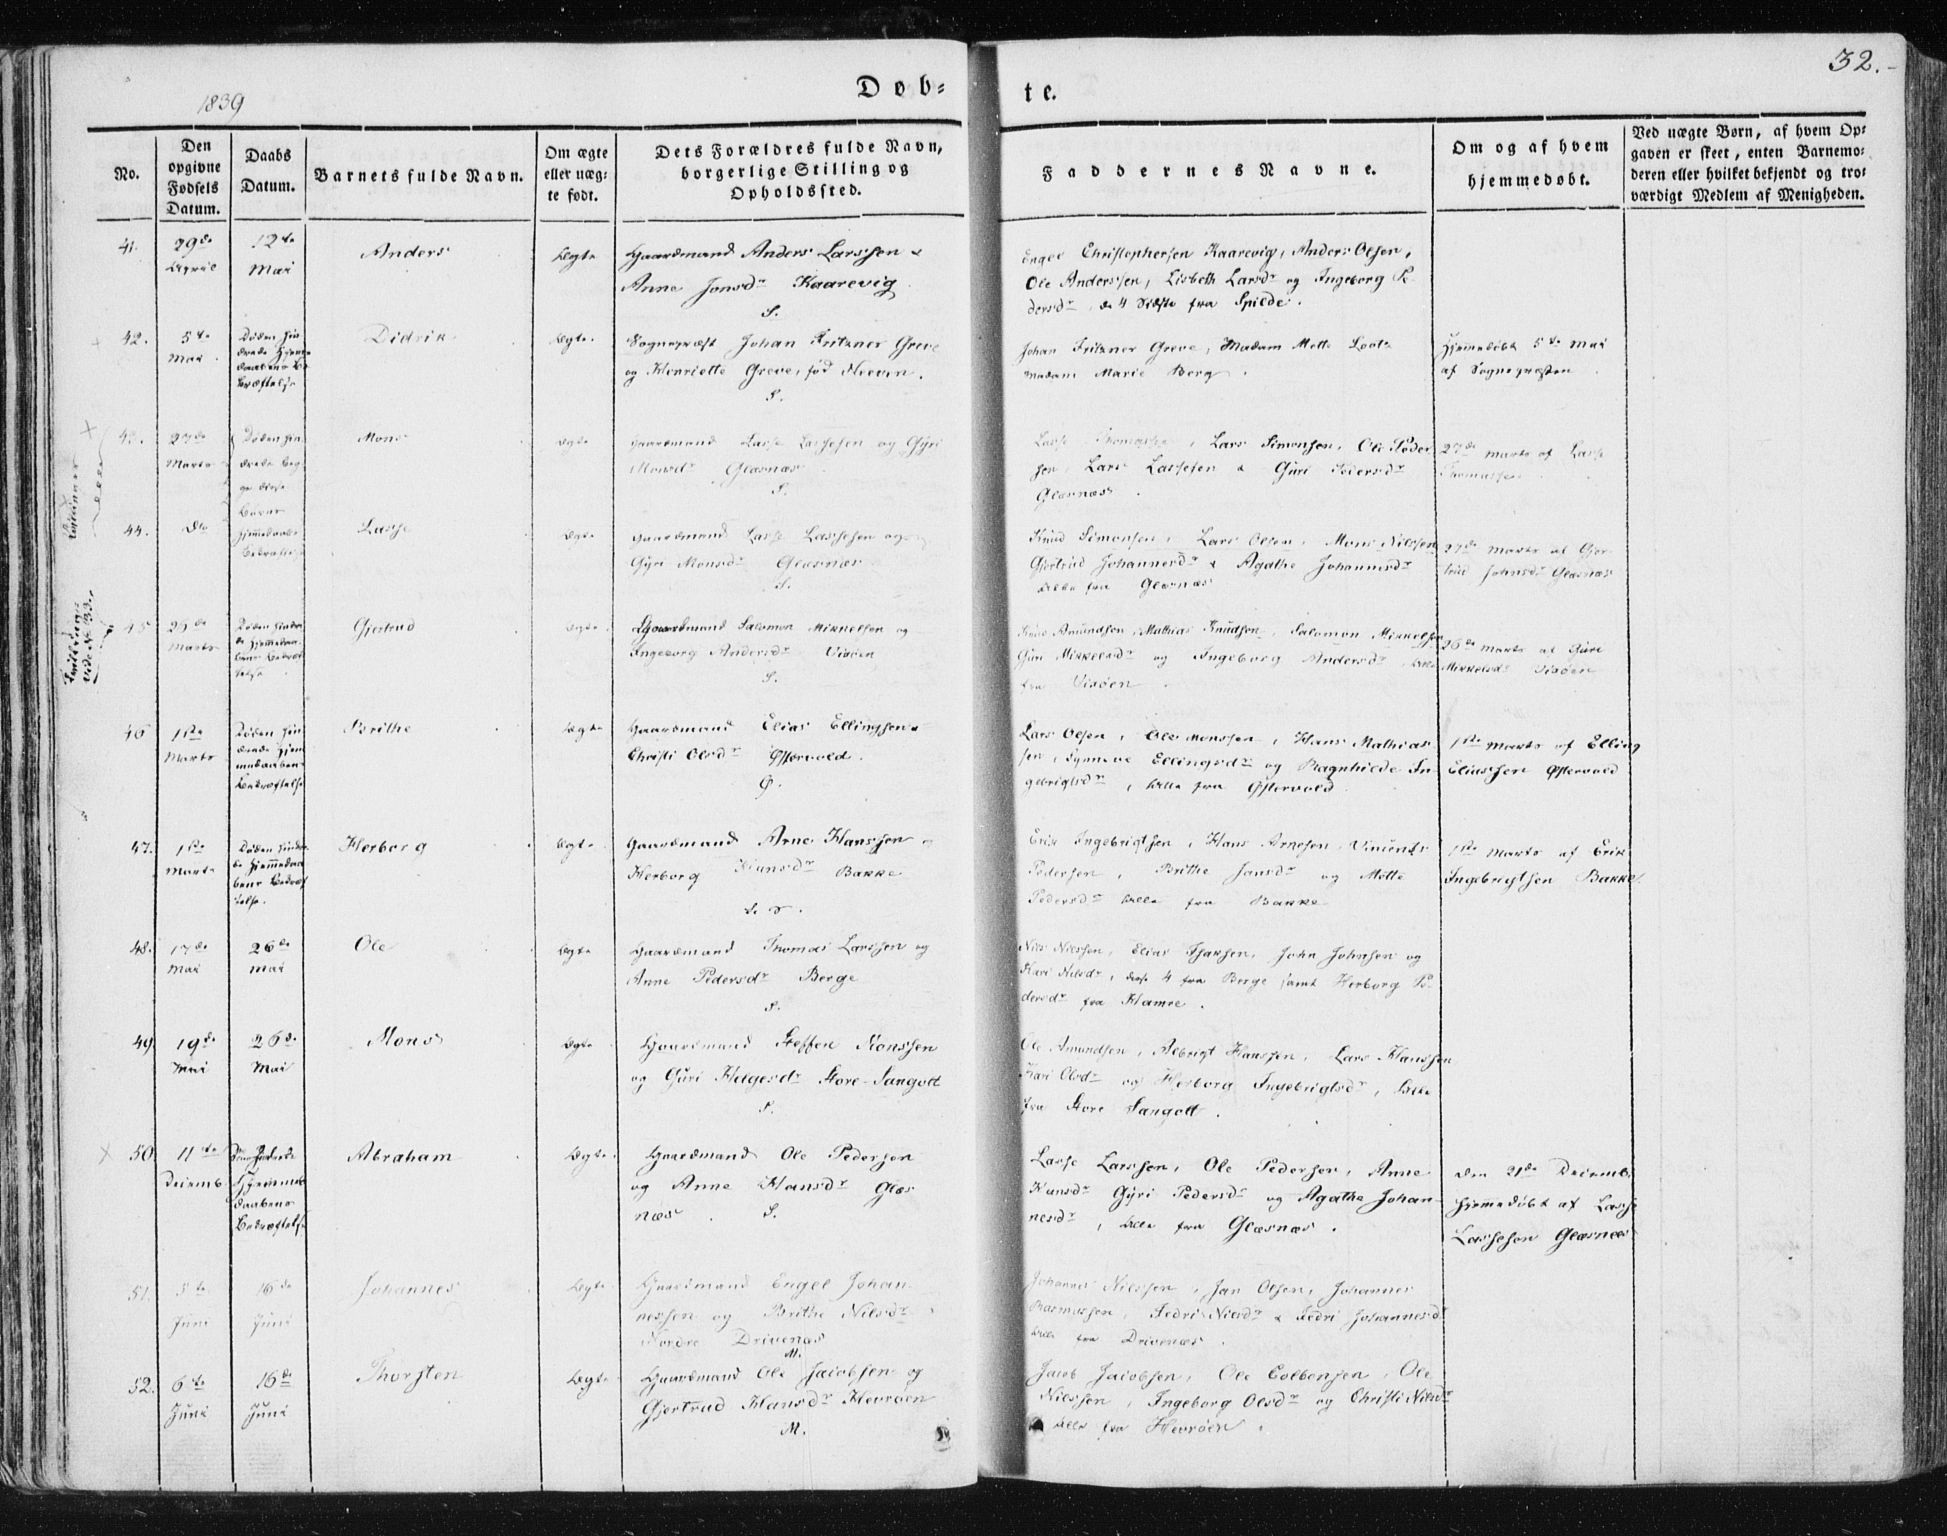 1839
Døb=
te.
32.
No.
Den
opgivne
Fødsels
Datum.
Daabs
Datum.
Barnets fulde Navn.
Om ægte
eller uæg-
te født.
Dets Forældres fulde Navn,
borgerlige Stilling og
Opholdssted.
Faddernes Navne.
Om og af hvem
hjemmedøbt.
Ved uægte Børn, af hvem Op-
gaven er skeet, enten Barnemo-
deren eller hvilket bekjendt og tro-
værdigt Medlem af Menigheden.
41.
29de
April
12te
Mai
Anders
Ægte
Gaardmand Anders Larssen &
Anne Jonsdr Kaarevig.
S.
Engel Christophersen Kaarevig, Anders Olsen,
Ole Anderssen, Lisbeth Larsdr og Ingeborg Pe-
dersdr, de 4 Sidste fra Spilde.
42.
5te
Mai
Døden hin
drede Hjemme
daabens Be
kræftelse
Didrik
Ægte.
Sognepræst Johan Fritzner Greve
og Henriette Greve, fød
S.
Johan Fritzner Greve, Madam Mette
Madam Marie Berg.
Hjemmedøbt 5te Mai
af Sognepræsten
43.
27de
Marts
Døden hin
drede beg-
ge disse
Børns
Mons
Ægte
Gaardmand Lasse Lassesen og Gyri
Monsdr Glæsnæs
S.
Lasse Thomassen, Lars Simonsen, Ole Peder
sen, Lars Lassesen & Guri Pedersdr
Glæsnæs.
27de Marts af Lasse
Thomassen
44.
do
Hjemmedaabs
Bekræftelse
Lasse
Ægte
Gaardmand Lasse Lassesen og
Gyri Monsdr Glæsnæs
S.
Knud Simonsen, Lars Olsen, Mons Nilssen
Gjertrud Johannesdr & Agathe Johannesdr
Alle fra Glæsnæs
27de Marts af Gjer-
trud Johnsdr Glæsnæs
45
Marts
Døden hindre
de Hjemmedaa
bens Bekræf
telse
Gjertrud
Ægte
Gaardmand Salomon Mikkelsen og
Ingeborg Andersdr Vixøen
S.
Knud Amundsen, Mathias Knudsen, Salomon Mikkelsen
Guri Mikkelsdr og Ingeborg Andersdr, Alle
fra Vixøen.
26de Marts af Guri
Mikkelsdr Vixøen
46
1ste
Marts
Døden hin
drede Hjem
medaabens
Bekræftelse
Brithe
Ægte
Gaardmand Elias Ellingsen &
Christi Olsdr Østervold.
Ø.
Lars Olsen, Ole Monssen, Hans Mathias
sen, Synneve Ellingsdr og Ragnhilde In-
gebrigtsdr, Alle fra Østervold
1ste Marts af Elling
Eliassen Østervold
47.
1ste
Marts
Døden hindre
de Hjemmedaa
bens Bekræf
telse.
Herborg
Ægte
Gaardmand Arne Hanssen og
Herborg Hansdr Bakke
Erik Ingebrigtsen, Hans Arnesen, Vincents
Pedersen, Brithe Jansdr og Mette
Pedersdr Alle fra Bakke
1ste Marts af Erik
Ingebrigtsen Bakke.
48.
17de
Mai
26de
Mai
Ole
Ægte
Gaardmand Thomas Larssen og
Anne Pedersdr Berge
S.
Nils Nilssen, Elias Isaksen, John Johnsen og
Kari Nilsdr, disse 4 fra Berge samt Herborg Pe-
dersdr fra Hamre.
49
19de
Mai
26de
Mai
Mons
Ægte
Gaardmand Steffen Monssen
og Guri Helgesdr Store-Sangolt
S.
Ole Amundsen, Albrigt Hanssen, Lars Hanssen
Kari Olsdr og Herborg Ingebrigtsdr, Alle
fra Store Sangolt.
50
11te
Decemb
Hjemme
daabens
Bekræftelse
Abraham
Ægte.
Gaardmand Ole Pedersen
og Anne Hansdr Glæs
næs
S.
Lasse Larssen, Ole Pedersen, Anne
Hansdr Gyri Pedersdr og Agathe Johan-
nesdr, Alle fra Glæsnæs.
den 21de Decemb.
hjemmedøbt af Lasse
Lassesen Glæsnæs
51.
5te
Juni
16de
Juni
Johannes
Ægte
Gaardmand Engel Johan-
nessen og Brithe Nilsdr
Nordre Drivenæs
M.
Johannes Nilssen, Jan Olsen, Johannes
Rasmussen, Sedri Nilsdr & Sedri Johannesdr
Alle fra Drivenæs.
52.
6te
Juni
16de
Juni
Thorsten
Ægte
Gaardmand Ole Jacobsen og
Gjertrud Hansdr Hevrøen
M.
Jacob Jacobsen, Ole Colbensen, Ole
Nilssen, Ingeborg Olsdr og Christi Nilsdr
Alle fra Hevrøen.